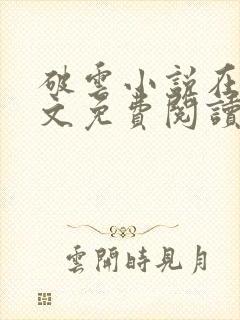 破雲小說在
文免費閱讀
雲開時見月